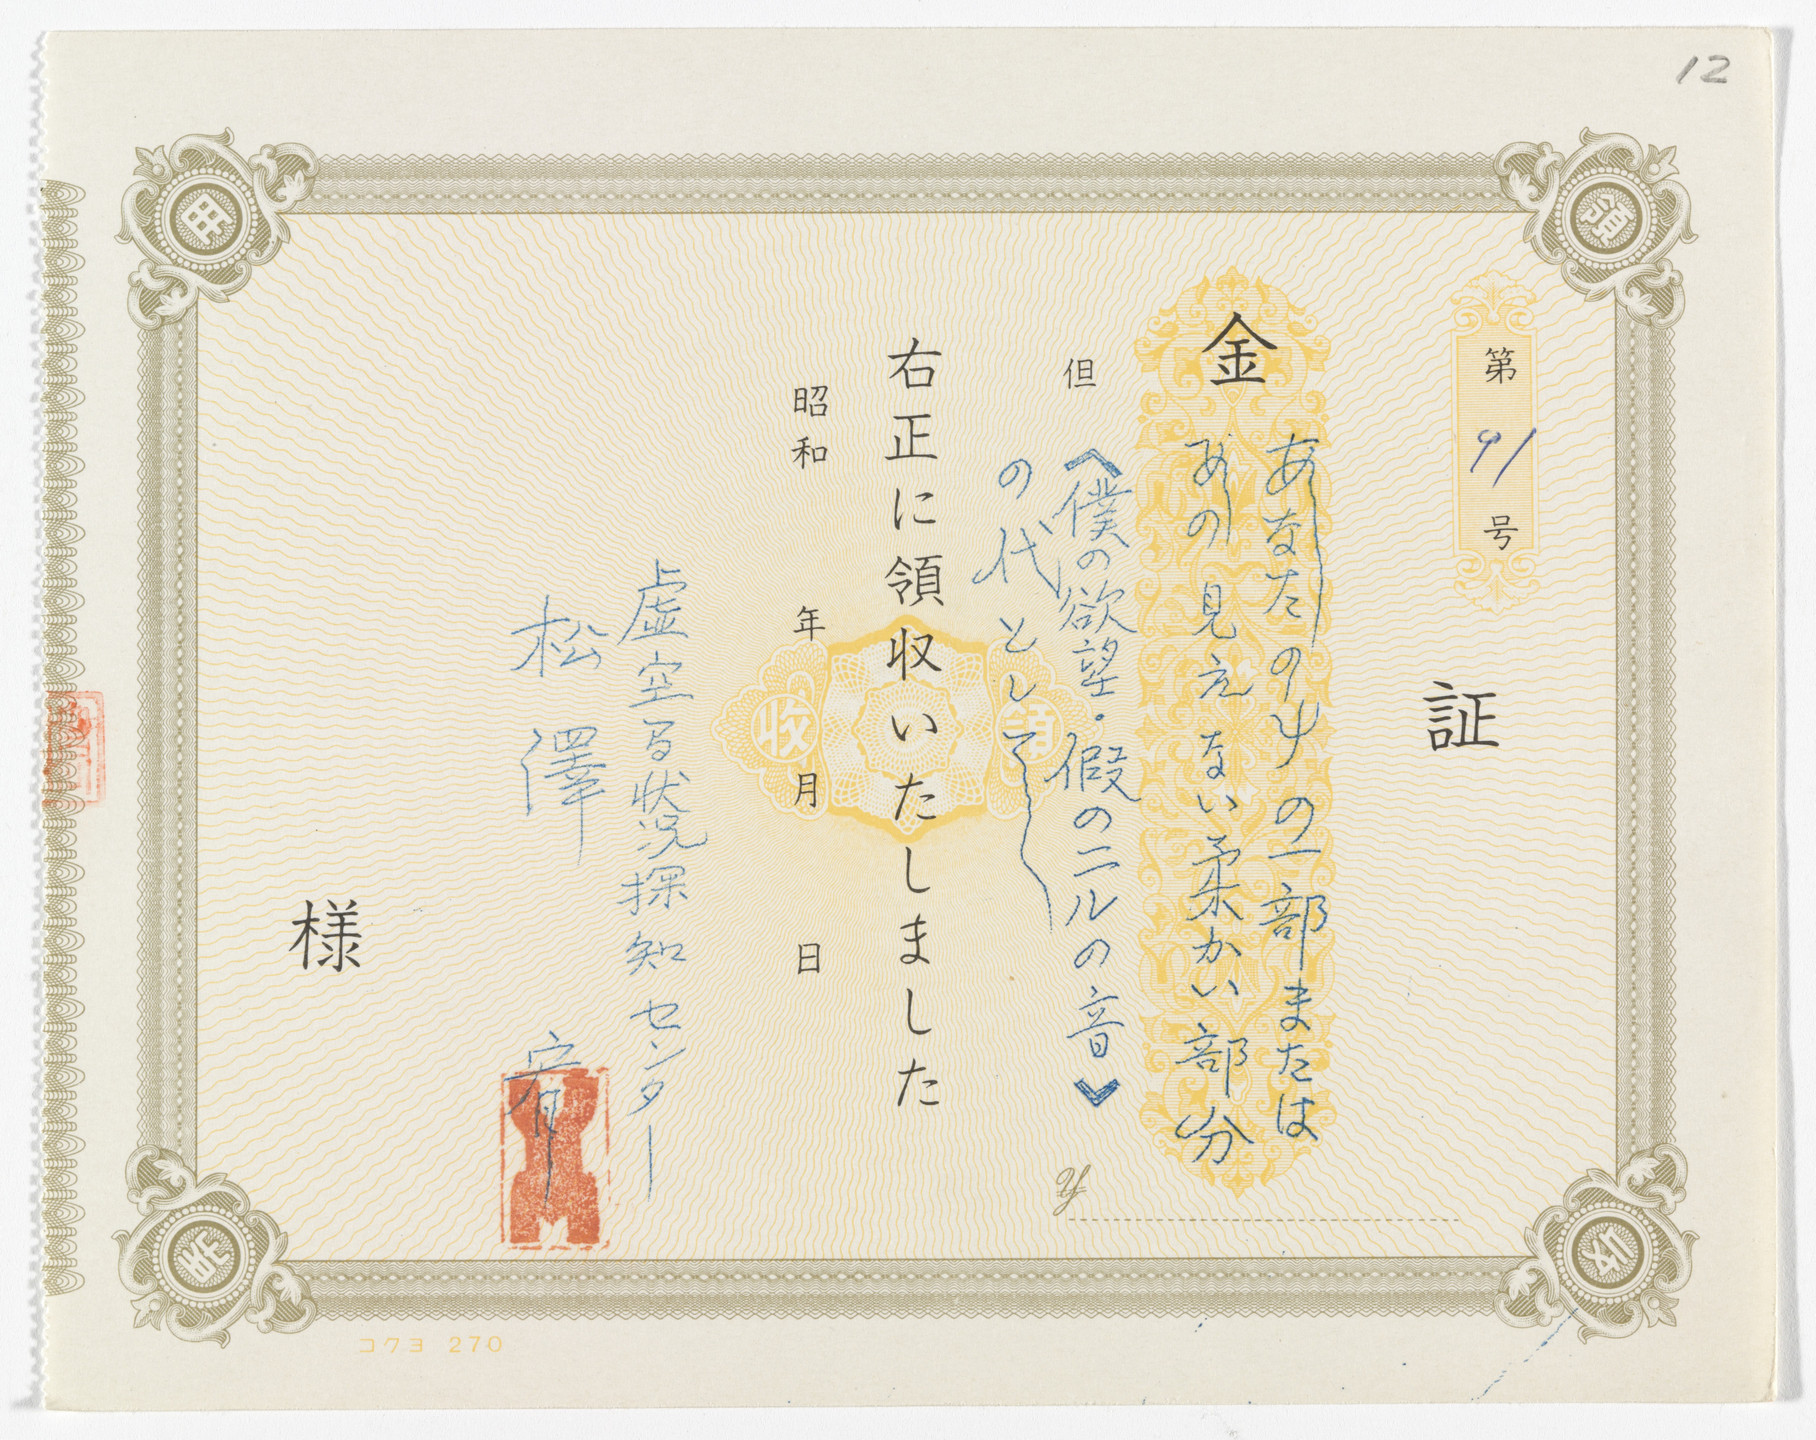 12
証
第 91 号
金 あなたのψの一部または
あの見えない柔かい部分
但 《僕の欲望・假のニルの音》
の代として
¥
右正に領収いたしました
昭和 年 月 日
虚空間状況探知センター
松澤宥
様
領收
領
收
用
コクヨ 270